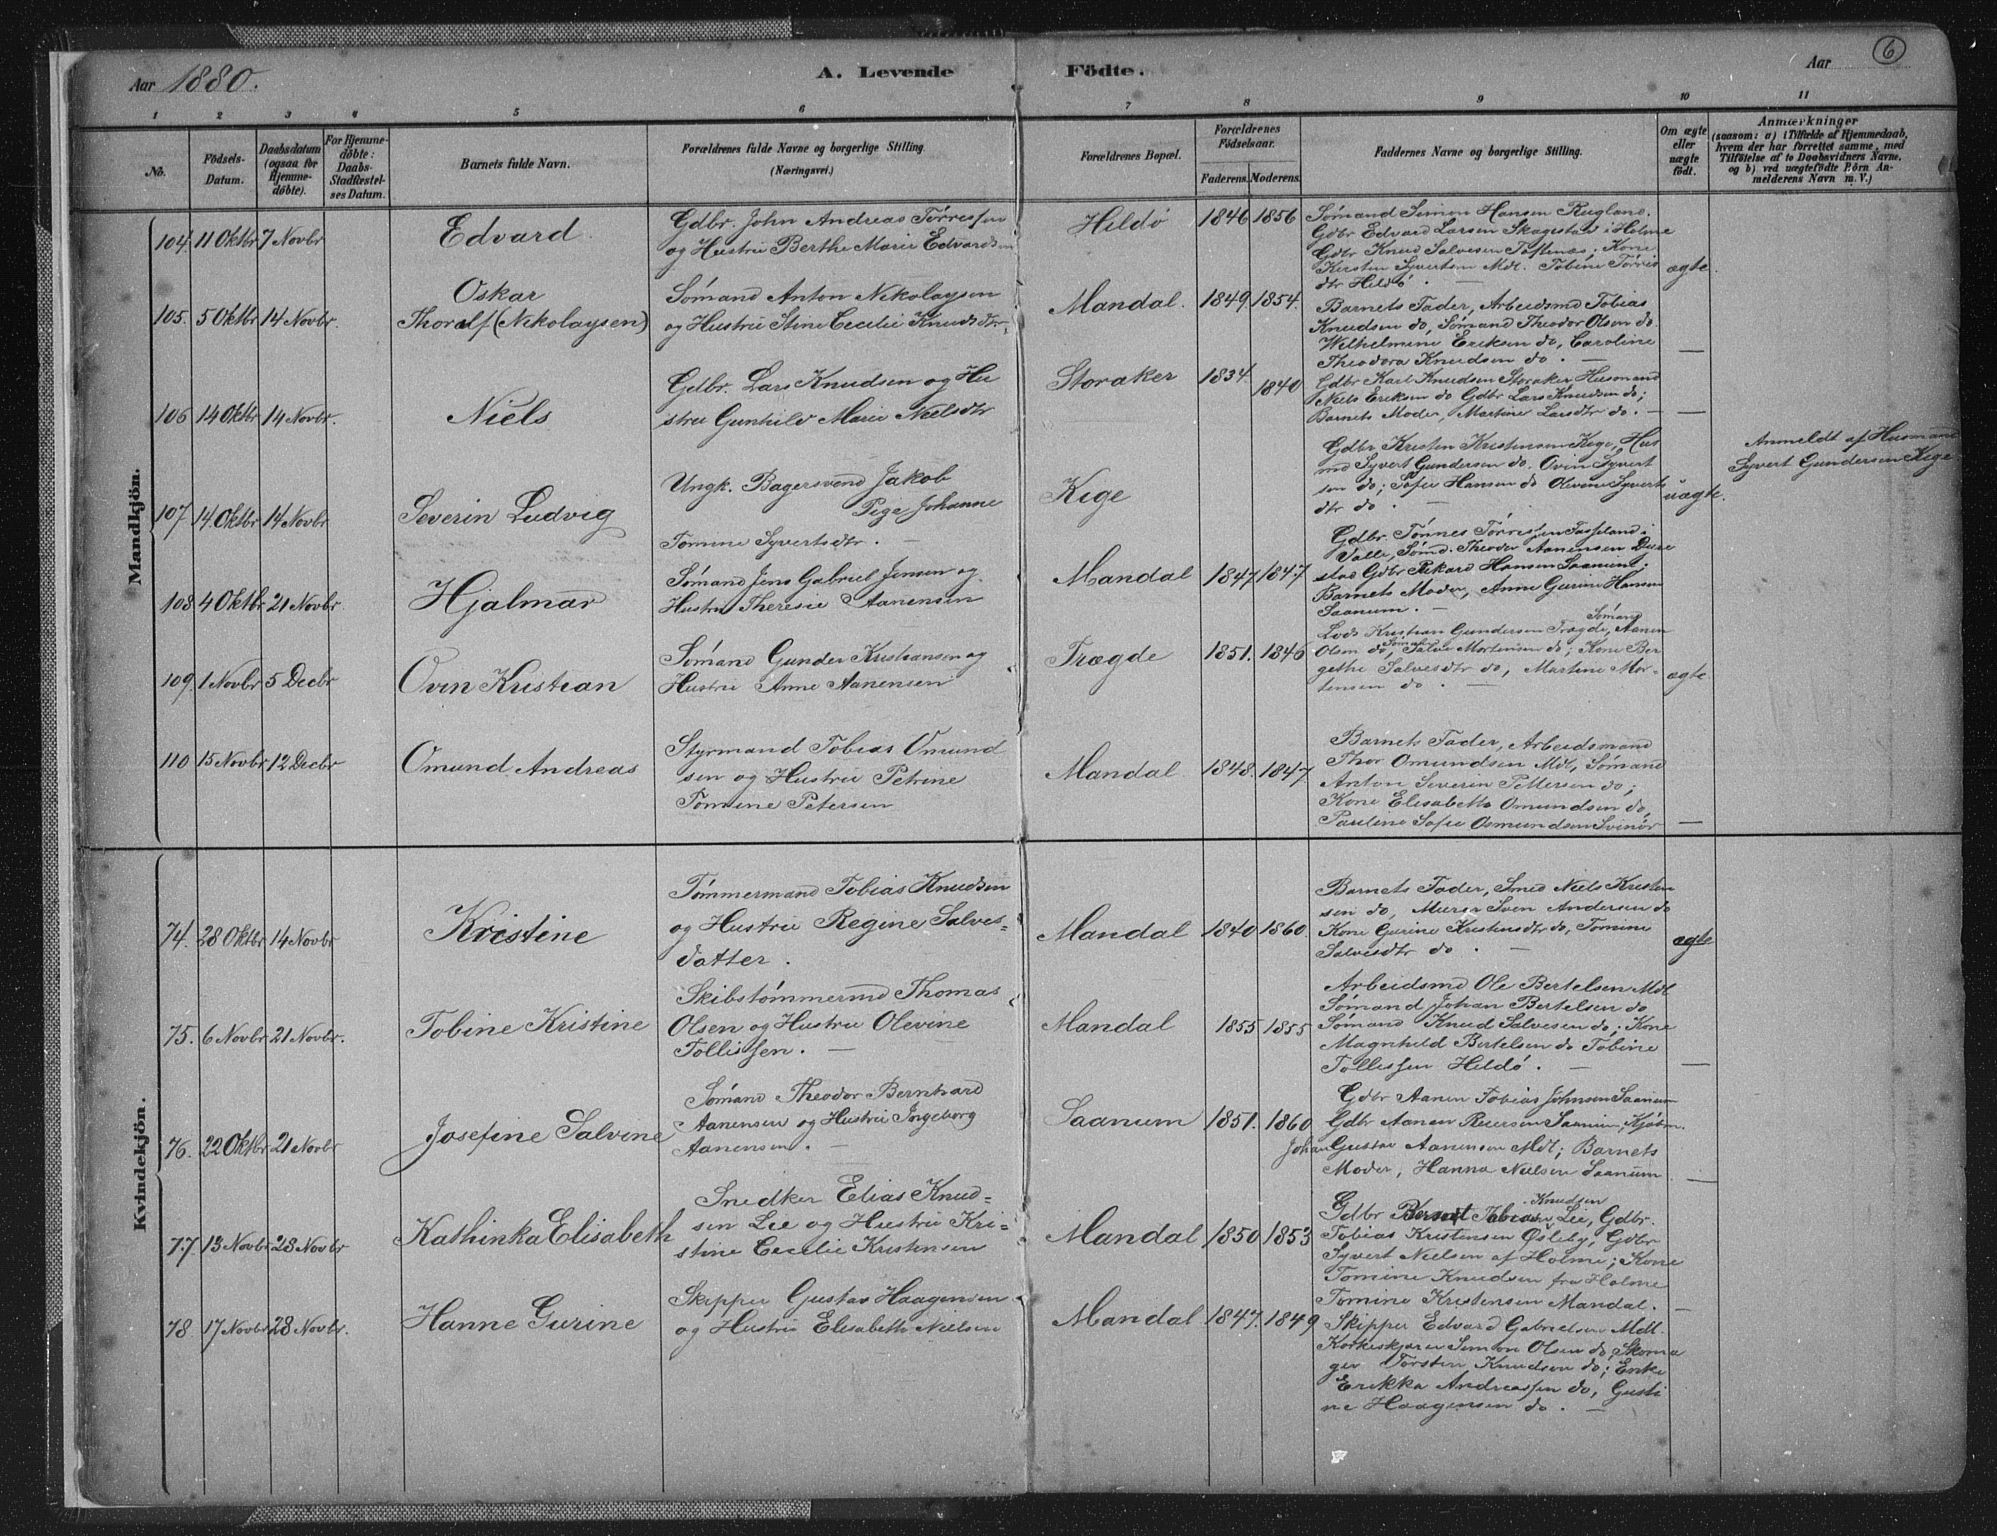 Aar 1880.
A. Levende Födte.
Aar
6
1 2 3 4 5 6 7 8 9 10 11
No.
Födsels-Datum.
Daabsdatum (ogsaa for Hjemmedøbte).
For Hjemmedøbte: Daabs-Stadfæstelses Datum.
Barnets fulde Navn.
Forældrenes fulde Navne og borgerlige Stilling.
(Næringsvei.)
Forældrenes Bopæl.
Forældrenes Födselsaar.
Faderens. Moderens.
Faddernes Navne og borgerlige Stilling.
Om ægte eller uægte födt.
Anmærkninger
(saasom: a) i Tilfælde af Hjemmedaab,
hvem der har forrettet samme, med
Tilföielse af to Daabsvidners Navne,
og b) ved uægtefödte Börn An-
melderens Navn m. V.)
Mandkjön.
104. 11 Oktbr 7 Novbr
Edvard
Gdbr. John Andreas Tørressen
og Hustru Berthe Marie Edvardsen
Hildö 1846 1856
Sømand Simon Hansen Rugland.
Gdbr Edvard Larsen Skagestad i Holme
Gdbr Knud Salvesen Toftenæs; Kone
Kersten Syvertsen Mdl. Tobine Tørris
dtr Hildö. —
ægte.
105. 5 Oktbr 14 Novbr.
Oskar
Thoralf (Nikolaysen)
Sømand Anton Nikolaysen
og Hustru Stine Cecilie Knudsdtr.
Mandal. 1849. 1854.
Barnets Fader, Arbeidsmd Tobias
Knudsen do, Sømand Theodor Olsen do.
Wilhelmine Eriksen do, Caroline
Theodora Knudsen do. —
—
106 14 Oktbr 14 Novbr.
Niels
Gdbr. Lars Knudsen og Hu
stru Gunhild Marie Nielsdtr
Storaker 1834. 1840
Gdbr Karl Knudsen Storaker Husmand
Niels Eriksen do Gdbr Lars Knudsen do;
Barnets Moder, Martine Larsdtr do. —
—
107 14 Oktbr 14 Novbr
Severin Ludvig
Ungk. Bagersvend Jakob
Pige Johanne
Tomine Syvertsdtr. —
Kige
Gdbr Kristen Kristensen Kige, Hus
md Syvert Gundersen do. Ovin Syvert
sen do; Sofie Hansen do Olevine Syverts
dtr do. —
uægte.
Anmeldt af Husmand
Syvert Gundersen Kige.
108 4 Oktbr 21 Novbr
Hjalmar
Sømand Jens Gabriel Jensen og
Hustru Theresie Aanensen
Mandal 1847 1847
Gdbr. Tønnes Tørresen i
Valle, Sømd. Theodor Aanensen
stad Gdbr Hansen Saanum;
Barnets Moder, Anne Gurine Hansen
Saanum. —
109. 1 Novbr 5 Decbr
Ovin Kristian
Sømand Gunder Kristiansen og
Hustru Anne Aanensen
Trægde 1851. 1846
Sømand
Lods Kristian Gundersen Trægde, Aanen
Olsen do, Sømd Salve Mortensen do; Kone Ber
gethe Salvesdtr do, Martine Mor-
tensen do. —
ægte.
110 15 Novbr 12 Decbr
Omund Andreas
Styrmand Tobias Omund
sen og Hustru Petrine
Tomine Petersen
Mandal 1848. 1847.
Barnets Fader, Arbeidsmand
Thor Omundsen Mdl, Sømand
Anton Severin Pettersen do;
Kone Elisabeth Omundsen do,
Pauline Sofie Osmundsen Svinör
—
Kvindekjön.
74. 28 Oktbr 14 Novbr
Kristine
Tømmermand Tobias Knudsen
og Hustru Regine Salves-
datter.
Mandal 1840 1860.
Barnets Fader, Smed Niels Kristen
sen do, Murer Sven Andersen do
Kone Gurine Kristensdtr do, Tomine
Salvesdtr do. —
ægte
75. 6 Novbr 21 Novbr.
Tobine Kristine
Skibstømmermd Thomas
Olsen og Hustru Olevine
Tollissen. —
Mandal 1855 1855
Arbeidsmd Ole Bertelsen Mdl
Sømand Johan Bertelsen do
Sømand Knud Salvesen do; Kone
Magnhild Bertelsen do Tobine
Tollessen Hildö. —
—
76. 22 Oktbr 21 Novbr
Josefine Salvine
Sømand Theodor Bernhard
Aanensen og Hustru Ingeborg
Aanensen. —
Saanum 1851. 1860
Gdbr Aanen Tobias Johnsen Saanum
Gdbr Aanen Reiersen Saanum, Kjøbm.
Johan Gustav Aanensen Mdl; Barnets
Moder, Hanna Nielsen Saanum.
—
77 13 Novbr 28 Novbr
Kathinka Elisabeth
Snedker Elias Knud-
sen Lie og Hustru Kri-
stine Cecilie Kristensen
Mandal 1850 1853
Knudsen
Gdbr Tobias Lie, Gdbr.
Tobias Kristensen Øsleby, Gdbr
Syvert Nielsen af Holme; Kone
Tomine Knudsen fra Holme
Tomine Kristensen Mandal.
—
78 17 Novbr 28 Novbr.
Hanne Gurine
Skipper Gustav Haagensen
og Hustru Elisabeth Nielsen
Mandal 1847. 1849
Skipper Edvard Gabrielsen Mdl.
Korkeskjærer Simon Olsen do, Skoma
ger Torsten Knudsen do; Enke
Erikka Andreassen do, Gusti
ne Haagensen do. —